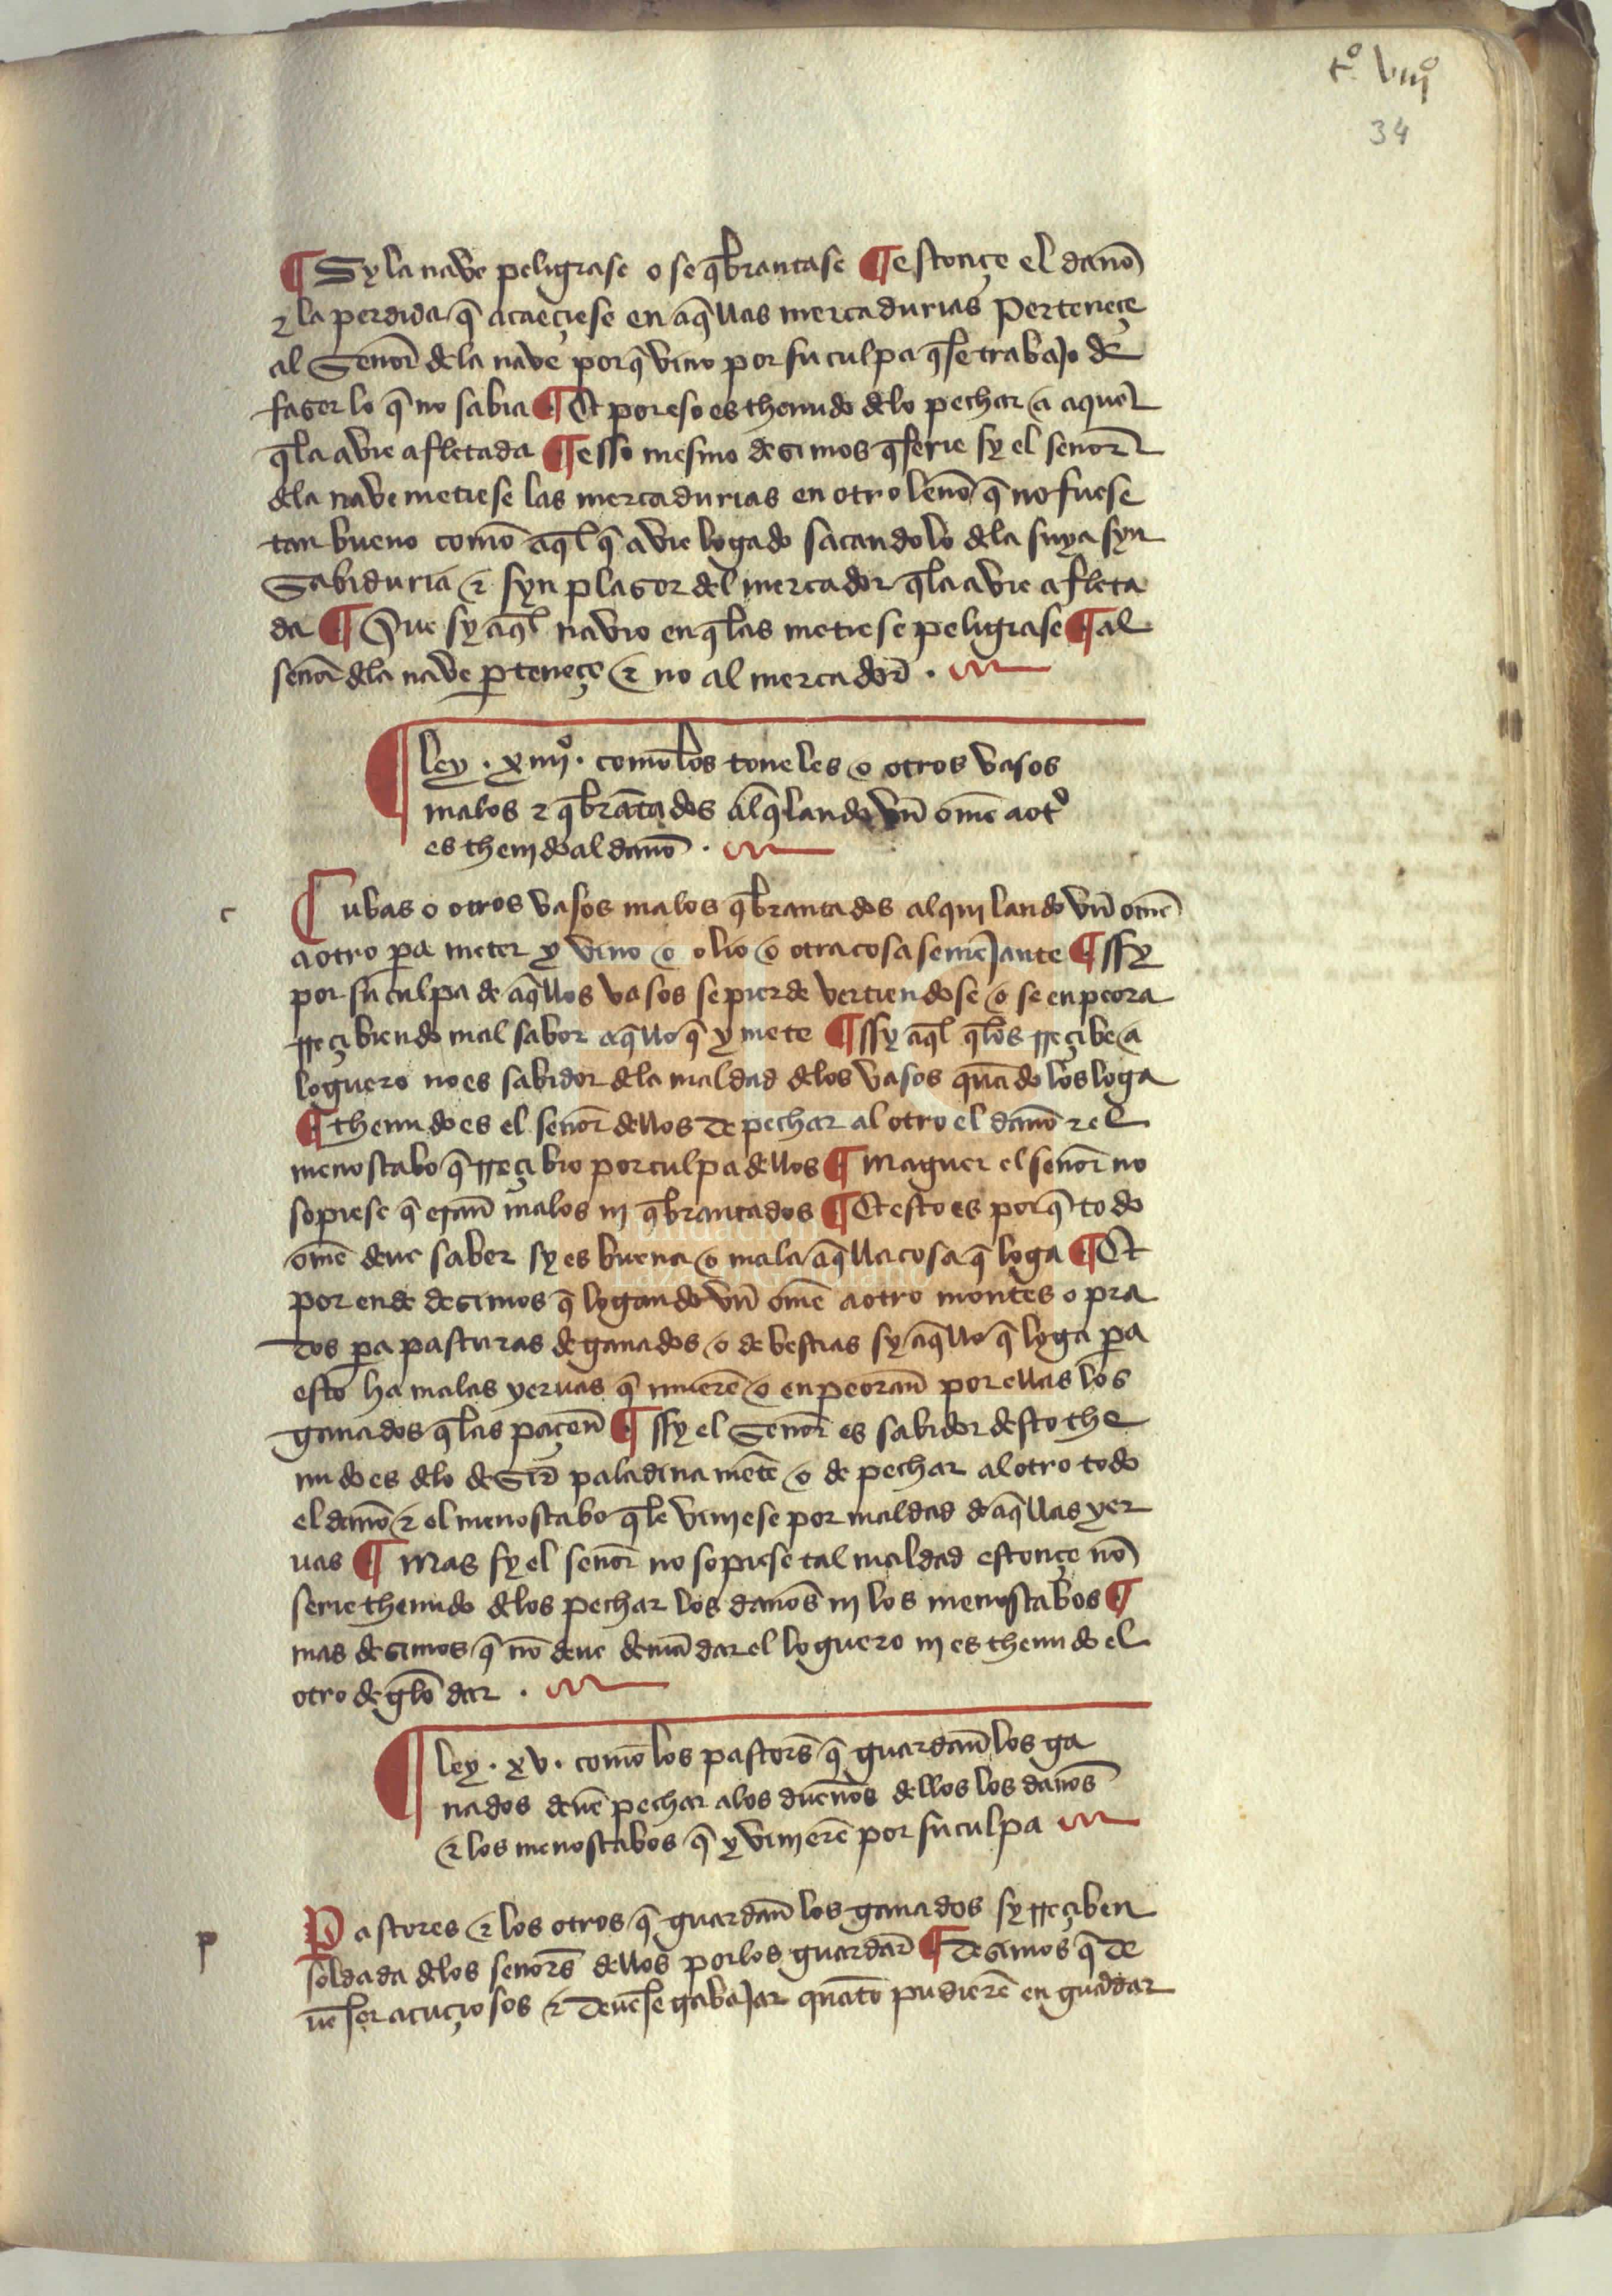 tº. viiiº
34
¶ Sy la nave peligrase o se q̃brantase ¶ estonçe el danõ
⁊ la perdida q̃ acaeçiese en aq̃llas mercadurias Perteneçe
al Senor̃ dela nave porq̃ vino por su culpa q̃ se trabajo de
faser lo q̃ no sabia ¶ Et por eso es thenudo delo pechar a aquel
q̃ la avie afletada ¶ esso mesmo desimos q̃ serie sy el senor̃
dela nave metiese las mercadurias en otro lenõ q̃ no fuese
tan bueno comõ aq̃l q̃ avie logado sacandolo dela suya syn
Sabiduria ⁊ syn plaser del mercador q̃ la avie afleta
da ¶ Que sy aq̃l navio en q̃ las metiese peligrase ¶ al
senor̃ dela nave ꝑteneçe ⁊ no al mercador̃ .
¶ ley . xiiijº . comõ los toneles o otros vasos
malos ⁊ q̃brãtados alq̃lando vñ omẽ a otº
es thenjdo al danõ .
c
Cubas o otros vasos malos q̃brantados alquilando vñ omẽ
a otro ꝑa meter y vino o olio o otra cosa semejante ¶ ssy
por su culpa de aq̃llos vasos se pierde vertiendose o se enpeora
rreçibiendo mal sabor aq̃llo q̃ y mete ¶ ssy aq̃l q̃ los rreçibe a
loguero no es sabidor dela maldad delos vasos quãdo los loga
¶ thenudo es el senor̃ dellos de pechar al otro el danõ ⁊ el
menoscabo q̃ rreçibio por culpa dellos ¶ maguer el senor̃ no
sopiese q̃ erañ malos nj q̃brantados ¶ Et esto es porq̃ todo
omẽ deue saber sy es buena o mala aq̃lla cosa q̃ loga ¶ Et
por ende desimos q̃ logando vñ omẽ a otro montes o pra
dos ꝑa pasturas de ganados o de bestias sy aq̃llo q̃ loga ꝑa
esto ha malas yeruas q̃ muerẽ o enpeorañ por ellas los
ganados q̃ las paçeñ ¶ ssy el Senor̃ es sabidor desto the
nudo es delo desir̃ paladina mẽte o de pechar al otro todo
el danõ ⁊ el menoscabo q̃ le vinjese por maldad de aq̃llas yer
uas ¶ mas sy el senor̃ no sopiese tal maldad estonçe nõ
serie thenudo delos pechar los danõs nj los menoscabos ¶
mas desimos q̃ nõ deue demãdar el loguero nj es thenudo el
otro de gelõ dar .
¶ ley . xv . comõ los pastorẽs q̃ guardañ los ga
nados deuẽ pechar alos duenõs dellos los danõs
⁊ los menoscabos q̃ y vinjerẽ por su culpa
p
Pastores ⁊ los otros q̃ guardañ los ganados sy rreçiben
soldada delos senorẽs dellos por los guardar̃ ¶ desimos q̃ de
uẽ ser acuçiosos ⁊ deuẽse trabajar quãto pudierẽ en guardar